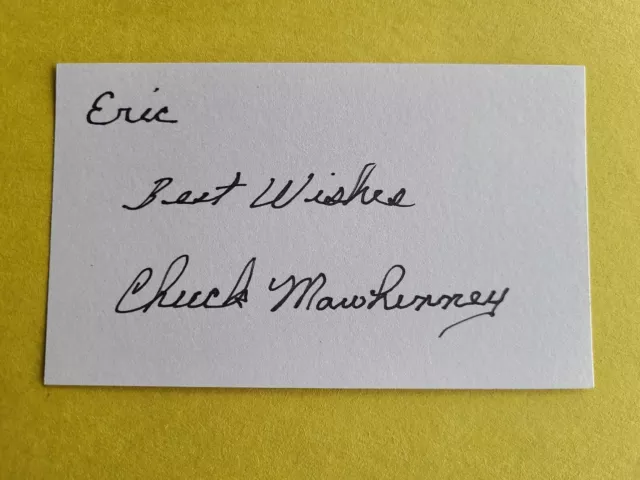 Eric
Best Wishes
Chuck Mawhinney